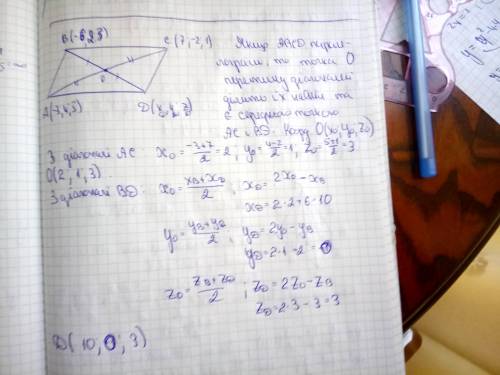 B(-6,2,3)
C(7,-2,1)
A(-3,4,5)
D(x, y, z)
O
Якщо ABCD парале-
лограм, то точка O
перетину діагоналей
ділить їх навпіл та
є серединою
AC і BD. Тоді O(x₀, y₀, z₀)
З діагоналі AC x₀ = (-3+7)/2 = 2, y₀ = (4-2)/2 = 1, z₀ = (5+1)/2 = 3
O(2, 1, 3)
З діагоналі BD: x₀ = (x_B + x_D)/2, x_D = 2x₀ - x_B
x_D = 2·2+6=10
y₀ = (y_B + y_D)/2, y_D = 2y₀ - y_B
y_D = 2·1-2 = 0
z₀ = (z_B + z_D)/2; z_D = 2z₀ - z_B
z_D = 2·3-3=3
D(10, 0, 3)